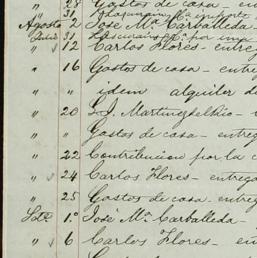 " 28 Gastos de casa - entre
" 31
Agosto 2 José Ma. Carballeda
" 31
" 12 Carlos Flores - entreg
" 16 Gastos de casa - entre
" " idem alquiler d
" 20 L. J. Martinez del Rio -
" " Gastos de casa - entreg
" 22 Contribucion por la c
" 24 Carlos Flores - entrega
" 25 Gastos de casa - entreg
Sbre 1º José Ma. Carballeda -
" 6 Carlos Flores - en